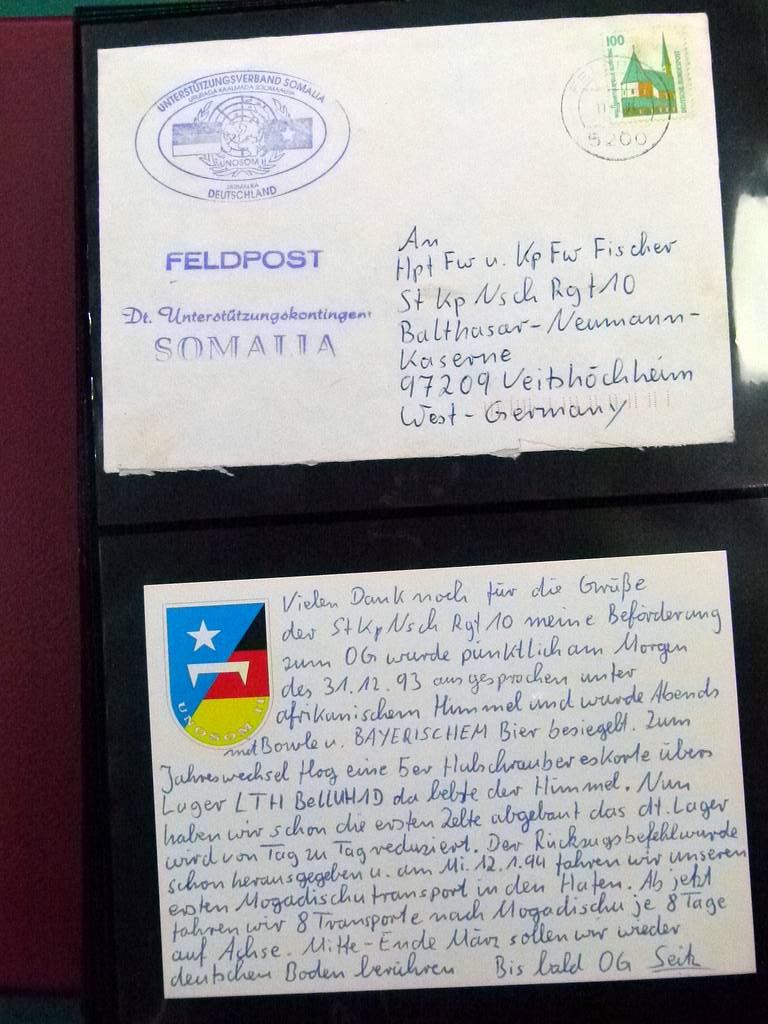 UNTERSTÜTZUNGSVERBAND SOMALIA
UNOSOM II
DEUTSCHLAND
100
DEUTSCHE BUNDESPOST
5200
FELDPOST
Dt. Unterstützungskontingent
SOMALIA
An
Hpt Fw u. Kp Fw Fischer
St Kp Nsch Rgt 10
Balthasar-Neumann-
Kaserne
97209 Veitshöchheim
West-Germany
UNOSOM II
Vielen Dank noch für die Grüße
der St Kp Nsch Rgt 10 meine Beförderung
zum OG wurde pünktlich am Morgen
des 31.12.93 ausgesprochen unter
afrikanischem Himmel und wurde Abends
mit Bowle u. BAYERISCHEM Bier besiegelt. Zum
Jahreswechsel flog eine 5er Hubschraubereskorte übers
Lager LTH BellUH1D da bebte der Himmel. Nun
haben wir schon die ersten Zelte abgebaut das dt. Lager
wird von Tag zu Tag reduziert. Der Rückzugsbefehl wurde
schon herausgegeben u. am Mi. 12.1.94 fahren wir unseren
ersten Mogadischutransport in den Hafen. Ab jetzt
fahren wir 8 Transporte nach Mogadischu je 8 Tage
auf Achse. Mitte-Ende März sollen wir wieder
deutschen Boden berühren Bis bald OG Seitz